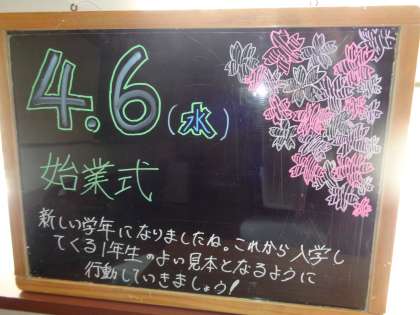 4.6(水)
始業式
新しい学年になりましたね。これから入学し
てくる1年生のよい見本となるように
行動していきましょう!